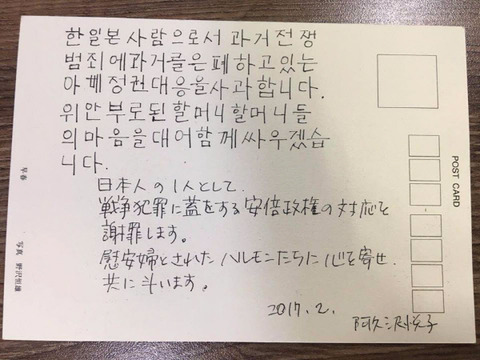 한일본사람으로서과거전쟁
범죄에과거를은페하고있는
아베정권대응을사과합니다.
위안부로된할머니할머니들
의마음을대어함께싸우겠습
니다.
日本人の1人として、
戦争犯罪に蓋をする安倍政権の対応を
謝罪します。
慰安婦とされたハルモニたちに心を寄せ、
共に斗います。
2017.2.
POST CARD
早春
写真 野沢